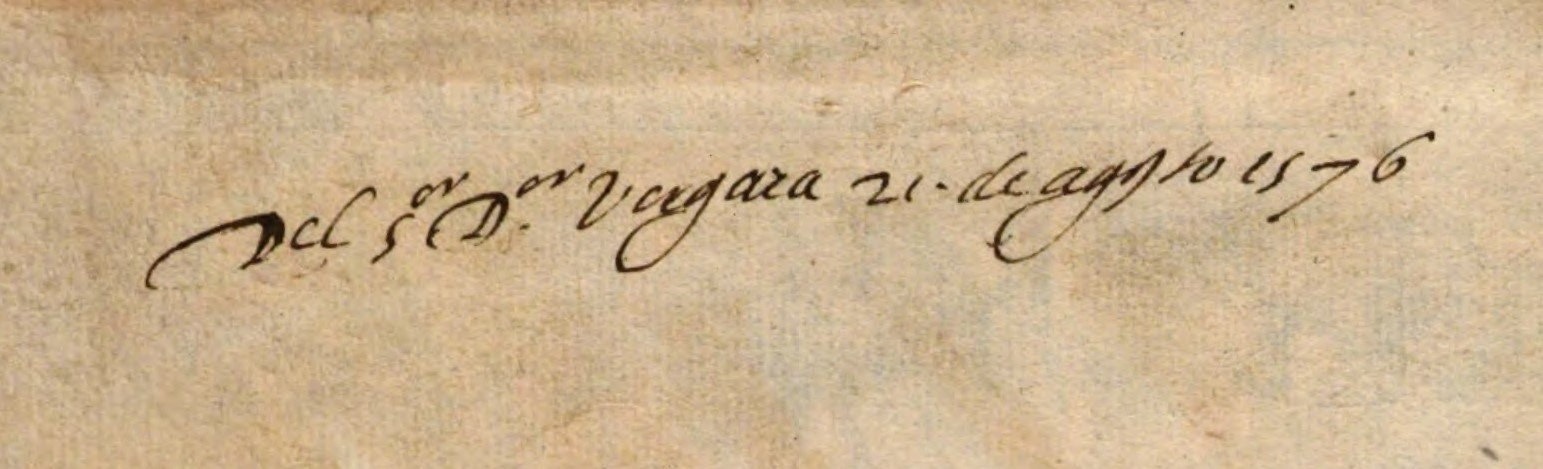 Del s.or D.or Vergara 21. de agosto 1576